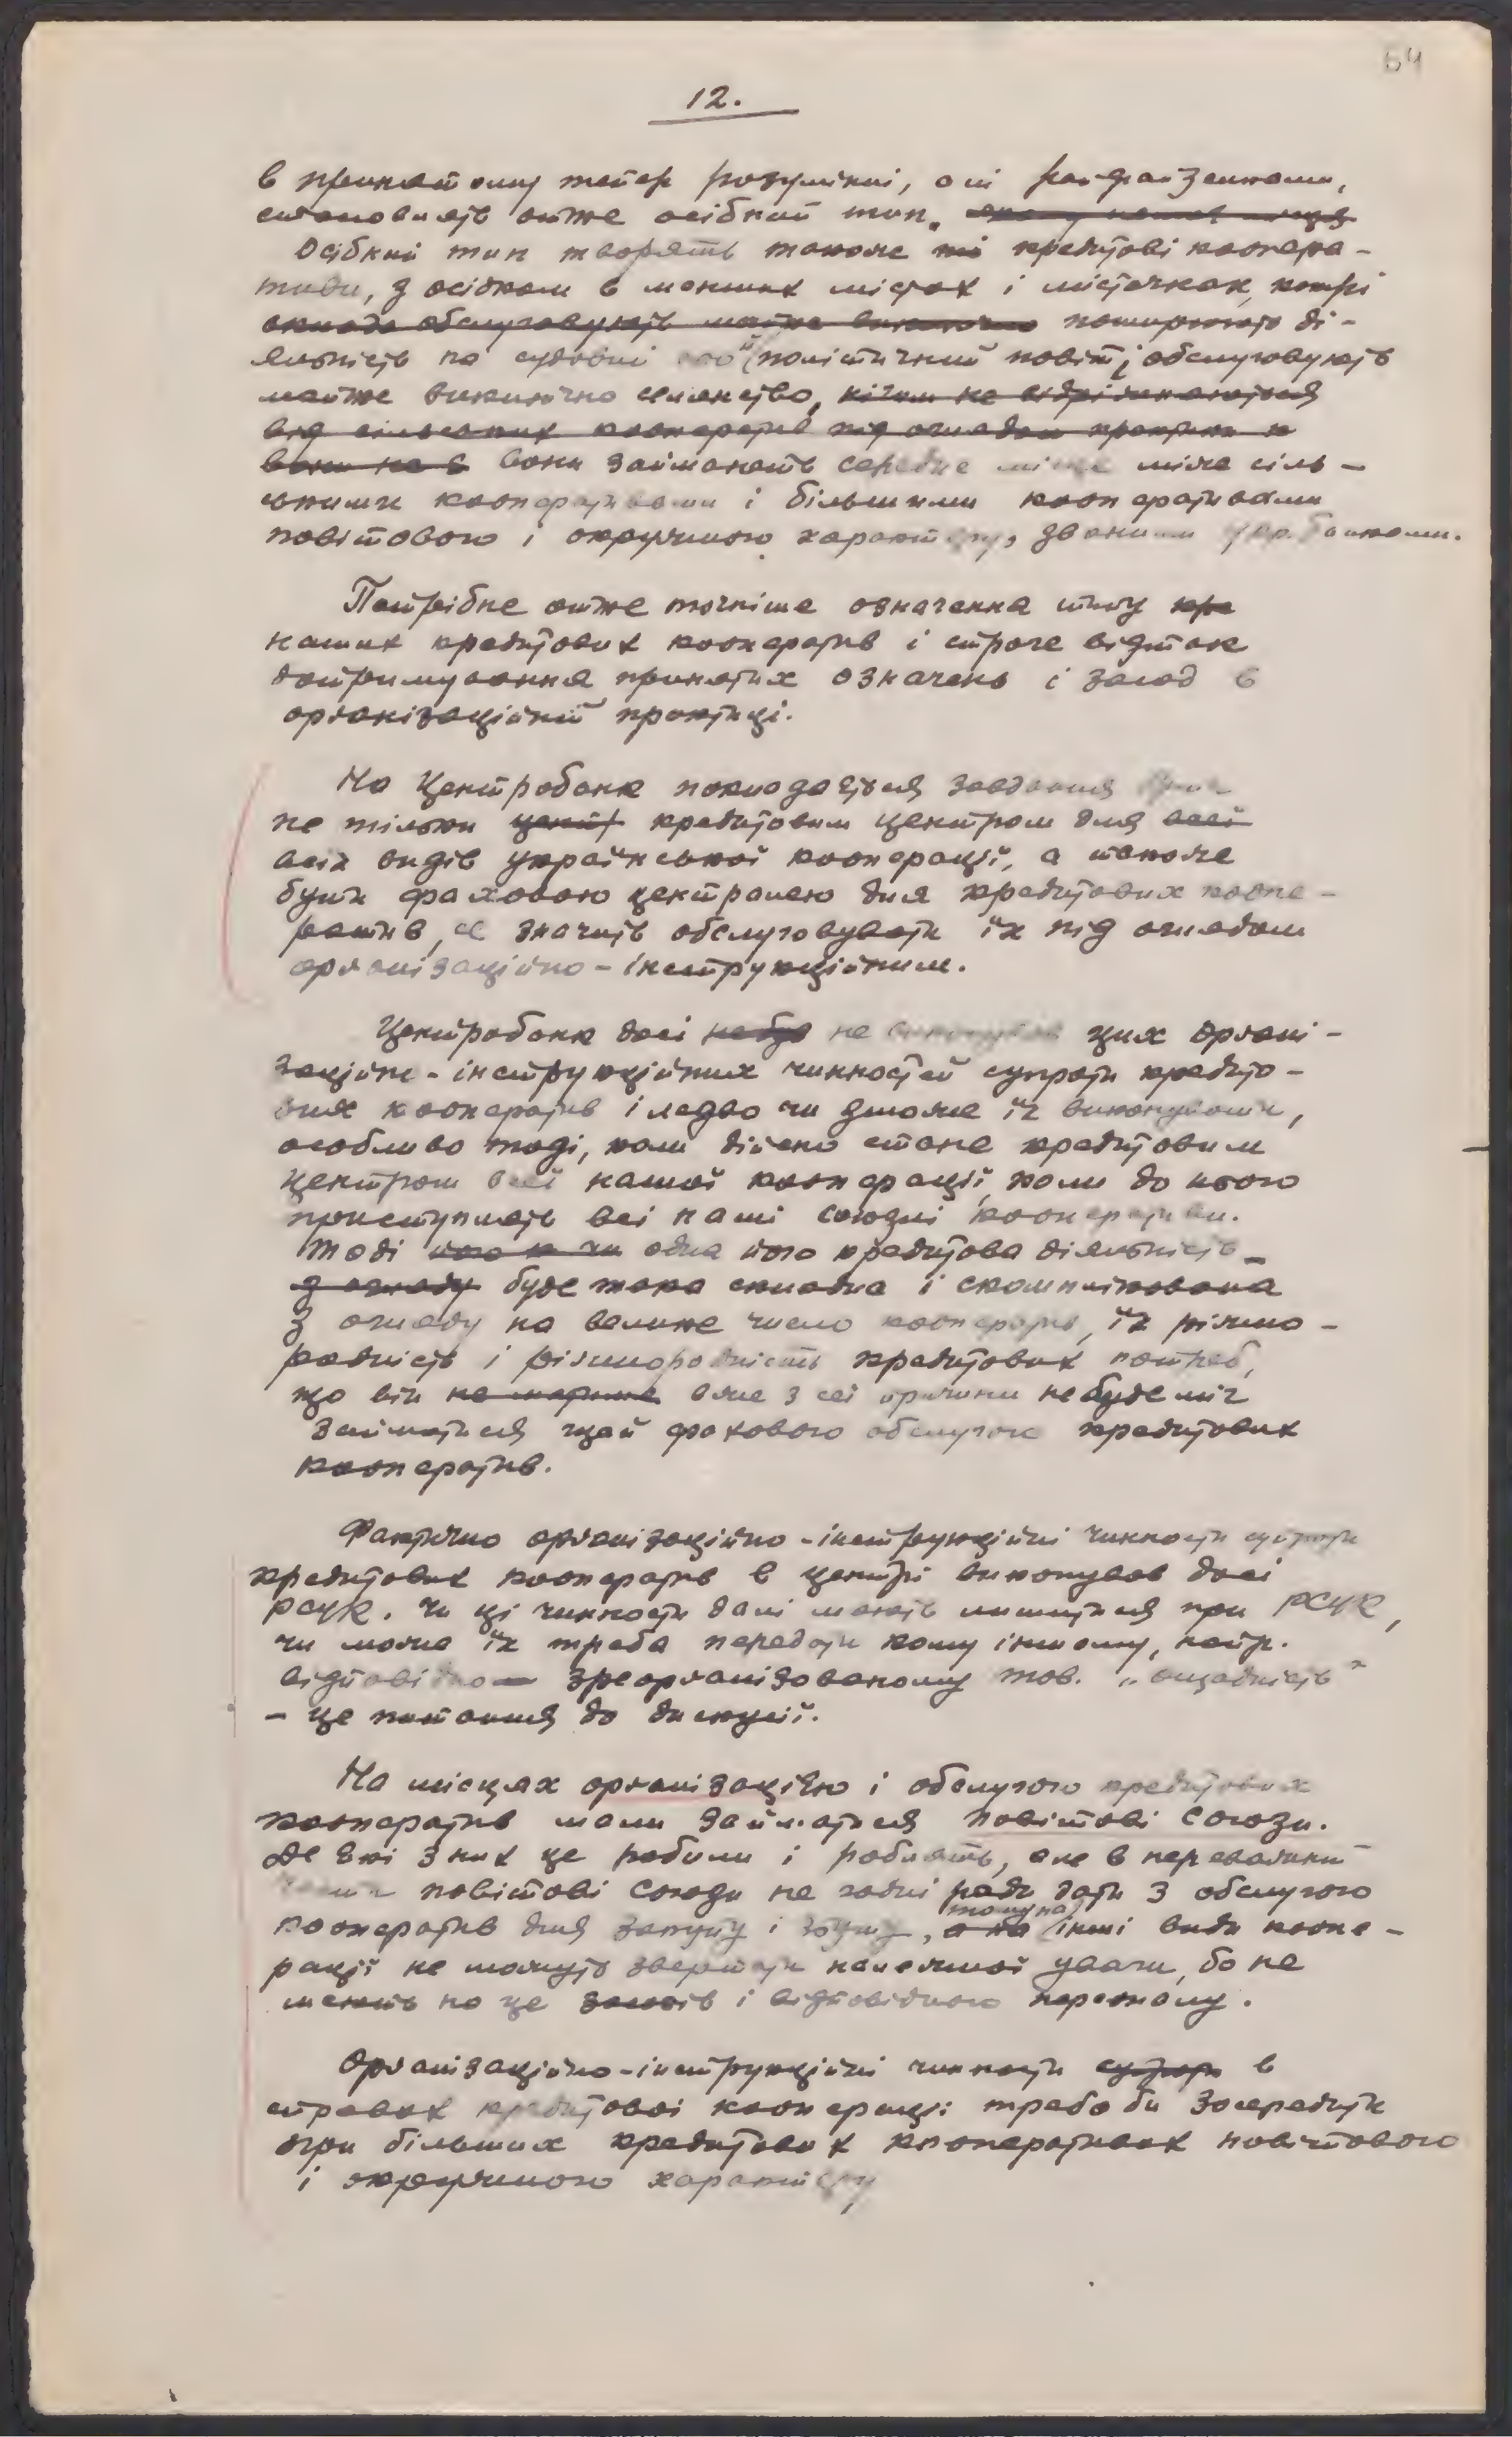 64
12.
в принятому тепер розумінні, ані райфайзенками,
становлять отже осібний тип.
Осібний тип творять також ті кредитові коопера-
тиви, з осідком в менших містах і містечках, котрі
поширюють ді-
яльність на судовий або політичний повіт і обслуговують
майже виключно селянство, нічим не відрізняються
від сільських кооператив під оглядом
вони не є вони займають середнє місце між сіль-
ськими кооперативами і більшими кооперативами
повітового і окружного характеру, званими укр. банками.
Потрібне отже точніше означення типу кре
наших кредитових кооператив і строге відтак
дотримування принятих означень і засад в
організаційній практиці.
На Центробанк покладається завдання
не тільки центр кредитовим центром для всеї
всіх видів української кооперації, а також
бути фаховою централею для кредитових коопе-
ратив, се значить обслуговувати їх під оглядом
організаційно-інструкційним.
Центробанк досі не був не виконував цих органі-
заційно-інструкційних чинностей супроти кредито-
вих кооператив і ледво чи зможе їх виконувати,
особливо тоді, коли дійсно стане кредитовим
центром всеї нашої кооперації, коли до нього
приступлять всі наші союзні кооперативи.
Тоді одна його кредитова діяльність
з огляду буде така складна і скомплікована
з огляду на велике число кооператив, їх різно-
родність і ріжнородність кредитових потреб,
що він вже з сеї причини не буде міг
займатися щей фахового обслугою кредитових
кооператив.
Фактично організаційно-інструкційні чинности супроти
кредитових кооператив в центрі виконував досі
РСУК. Чи ці чинности далі мають лишитися при РСУК,
чи може їх треба передати кому іншому, напр.
відповідно зреорганізованому тов. „Ощадність"
- це питання до дискусії.
На місцях організацією і обслугою кредитових
кооператив мали займатися повітові союзи.
Деякі з них це робили і роблять, але в переважній
повітові союзи не годні ради дати з обслугою
кооператив для закупу і збуту, а на тому на інші види коопе-
рації не можуть звертати належної уваги, бо не
мають на це засобів і відповідного персоналу.
Організаційно-інструкційні чинности супроти в
справах кредитової кооперації треба би зосередити
при більших кредитових кооперативах повітового
і окружного характеру